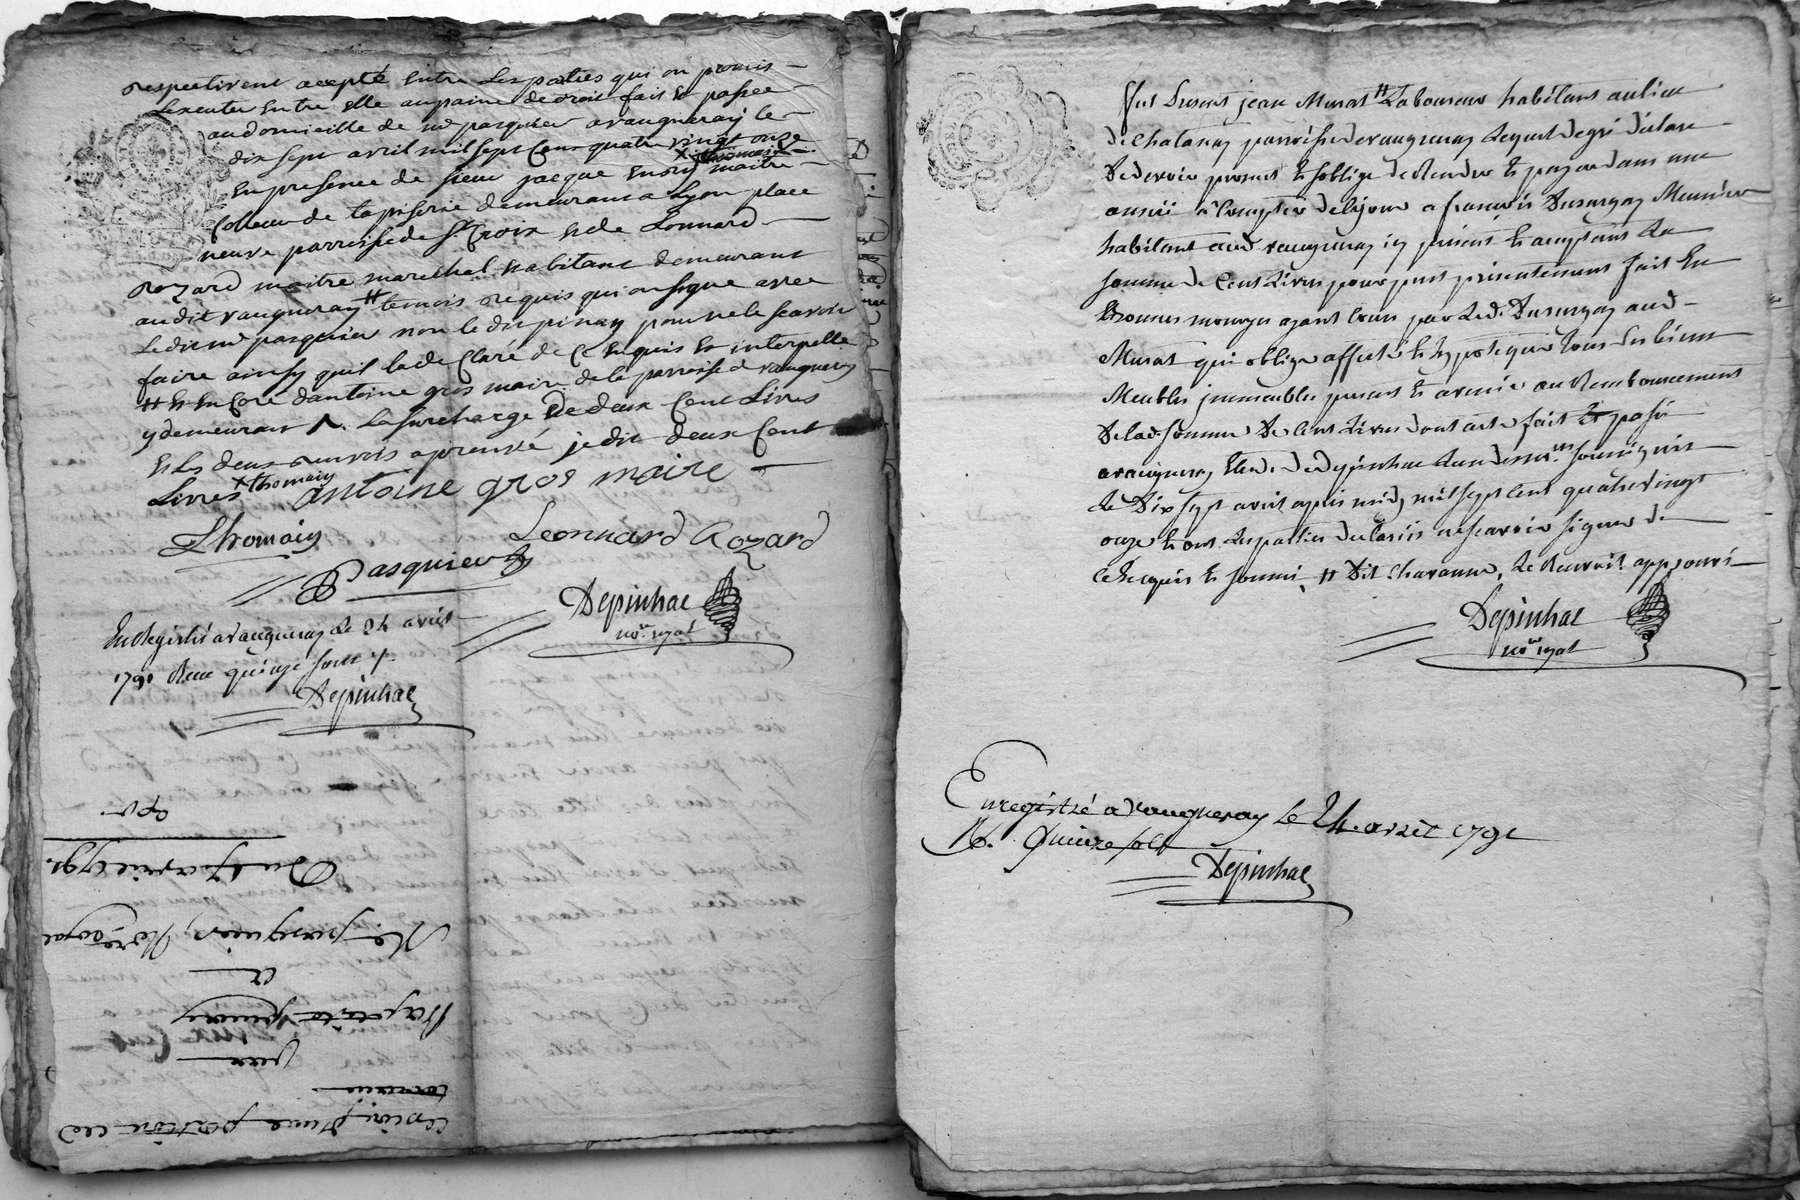 respectivent accepté entre les parties qui on promis
lexecuter entre elle aupaine de droit fait et passée
audomicille de me pasquier avaugneray le
dix sept avril mil sept cens quatre vingt onze
en presence de sieur jacque x thomain maitre
coleur de tapiserie demeurant a Lyon place
neuve parroisse de St Croix et de Leonnard
rozard maitre marechal habitant demeurant
audit vaugneray # temois requis qui on signe avec
ledit me pasquier non le dit pinay pour ne le scavoir
faire ainsy quil la de Claré de ce enquis et interpelle
# et encore dantoine gros maire de la parroisse de vaugneray
y demeurant . La surcharge de deux Cent Livres
et les deux renvois aprouvé je dit deux Cent
Livres x thomain
antoine gros maire
Thomain
Leonnard Rozard
Pasquier
Depinhac
nore royal
Enregistré a vaugneray le 24 avril
1791 Reçu quinze sous
Depinhac
Du 17 avril 1791.
Me pasquier, Nore royal
a
Baptiste pinay
pour
terrain
cession d'une portion
Fut present jean Murat # Laboureur habitant au lieu
de Chatanay parroisse de vaugneray lequel de gré déclare
de devoir promet et soblige de Rendre et payer dans une
année a Compter de ce jour a francois Dusurgey Meunier
habitant aud. vaugneray icy present et acceptant La
somme de Cent Livres pour prest presentement fait en
bonnes monoyes ayant cours par Led. Dusurgey aud.
Murat qui oblige affecte et hypoteque tous ses biens
Meubles immeubles present et avenir au Remboursement
De lad. somme De Cent Livres dont acte fait et passé
a vaugneray Etude de Depinhac Lun des nores soussignés
le Dix sept avril apres midy mil sept cent quatre vingt
onze et ont les parties declarées ne scavoir signer de
ce Enquis et sommé, # Dit Charavane, Le Renvoit approuvé
Depinhac
nore royal
Enregistré a Vaugneray le 24. avril 1791
R. Quinze sols
Depinhac